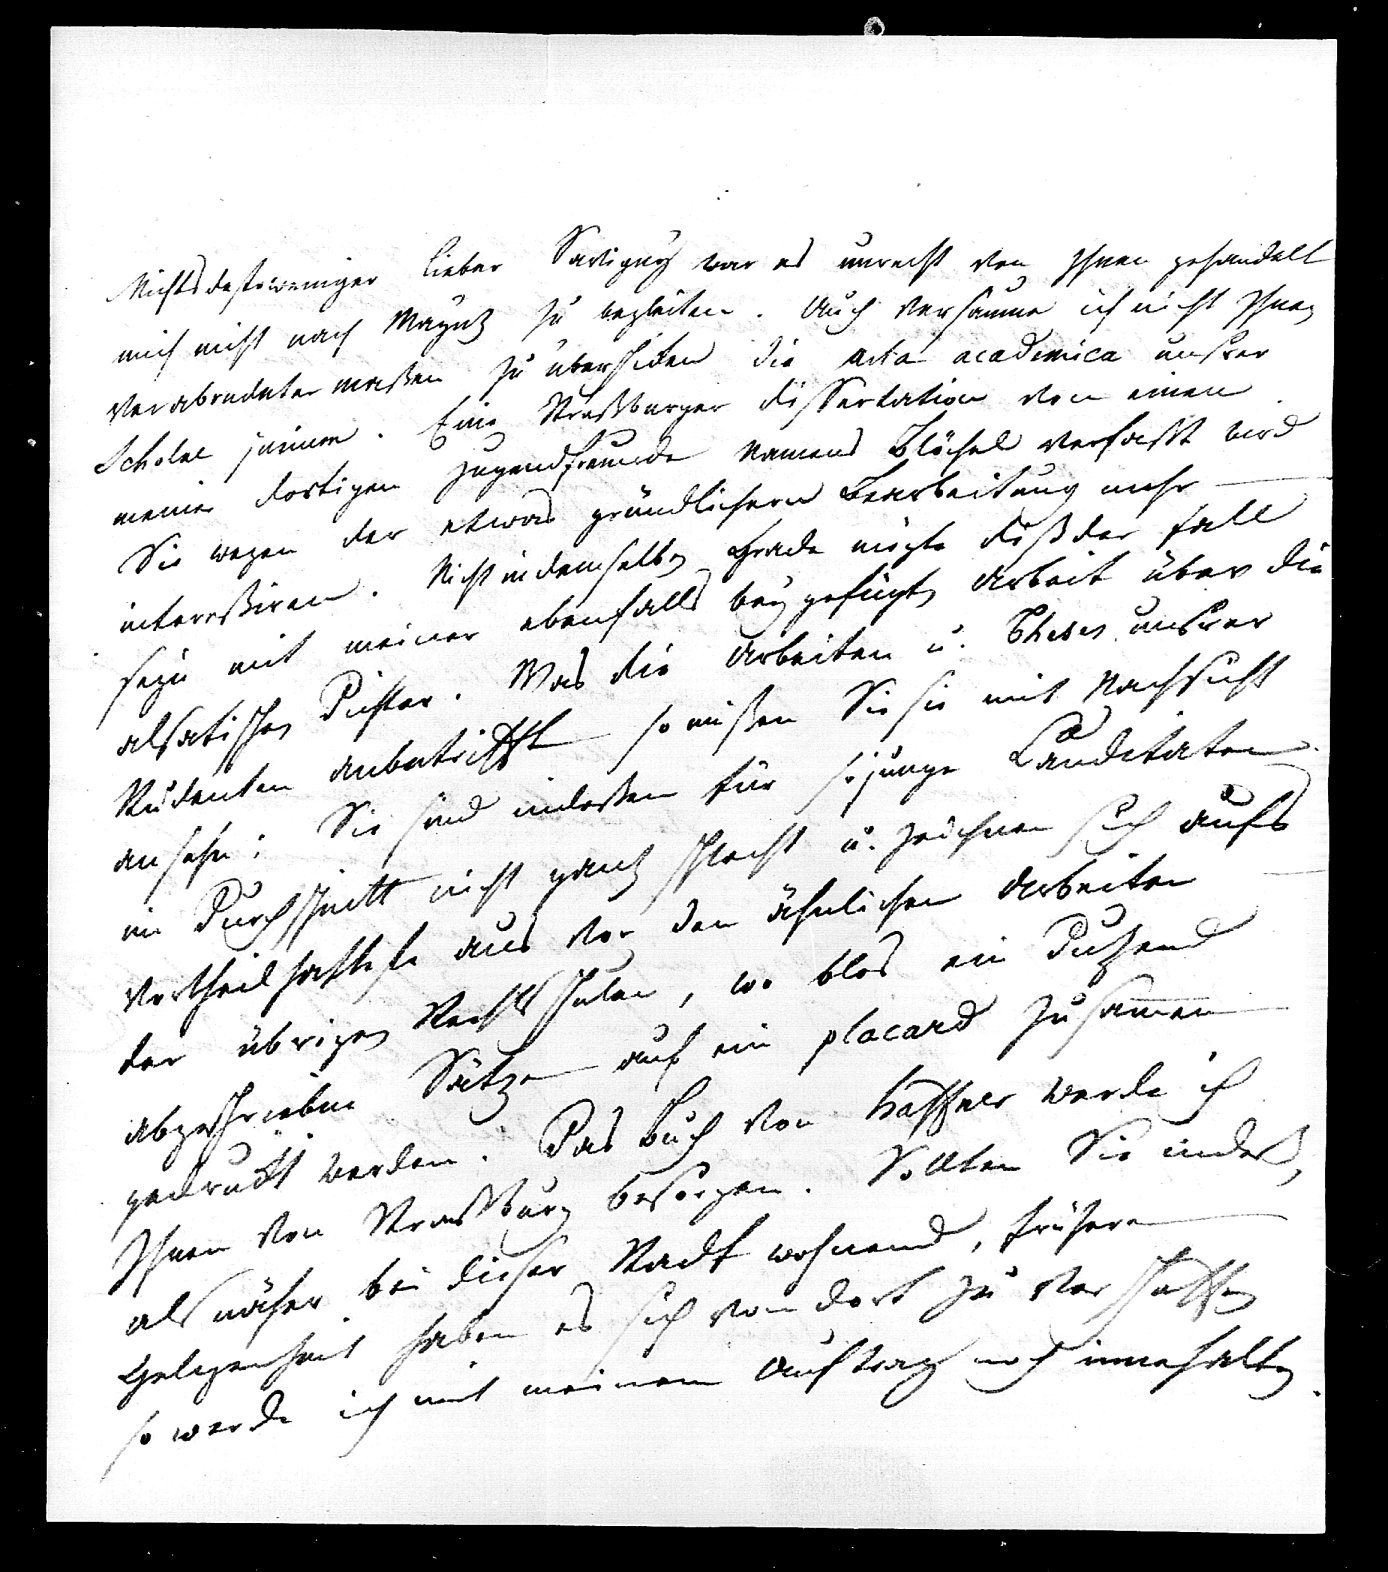 Nichts destoweniger lieber Savigny war es unrecht von Ihnen gehandelt
mich nicht nach Maynz zu begleiten. Auch versäume ich nicht Ihnen
verabredeter maßen zu überschicken die acta academica unsrer
Scholae juinen. Eine Straßburger Dissertation von einem
meiner dortigen Jugendfreunde Namens Blöchel verfasst wird
Sie wegen der etwas gründlichern Bearbeitung mehr
interessiren. Nicht in demselben Grade mögte diß der fall
seyn mit meiner ebenfalls beygefügten Arbeit über die
alsatischen Dichter. Was die Arbeiten u. Theses unsrer
Studenten anbetrifft so müßen Sie sie mit Nachsicht
ansehn; Sie sind indessen für so junge Canditaten
im Durchschnitt nicht ganz schlecht u. zeichnen sich aufs
vortheilhafteste aus vor den ähnlichen Arbeiten
der übrigen Rechtsschulen, wo blos ein Dutzend
abgeschriebne Sätze auf ein placard zusammen
gedruckt werden. Das Buch von Haffner werde ich
Ihnen von Strassburg besorgen. Sollten Sie indeß,
als näher bei dieser Stadt wohnend, frühere
Gelegenheit haben es sich von dort zu verschaffen
so werde ich mit meinem Auftrag noch innehalten.